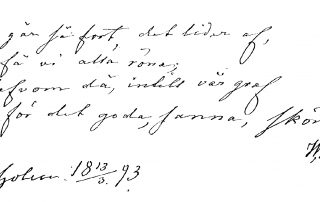 går så fort, det lider af,
få vi alla röna;
efvom då, intill vår graf
för det goda, sanna, skön
W.
holm 18 13/3 93